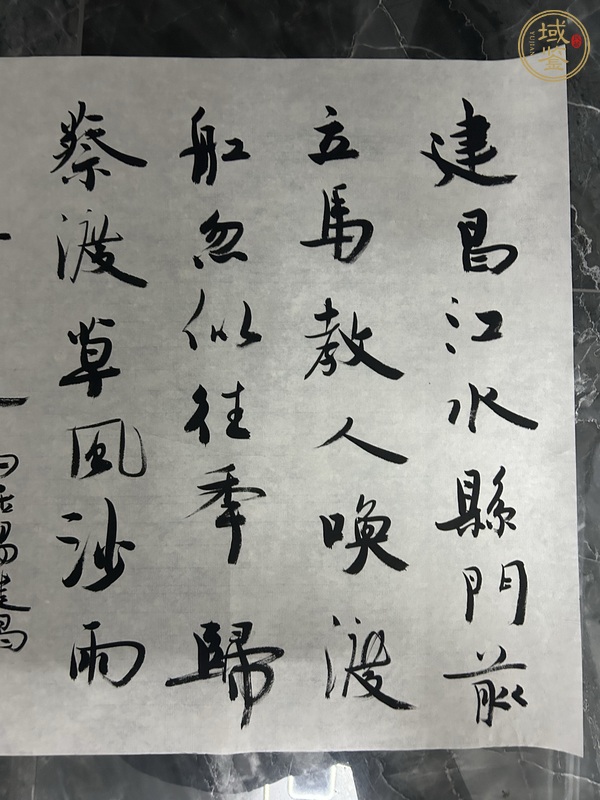 建昌江水縣門前
立馬教人喚渡
舡忽似往年歸
蔡渡草風沙雨
白居易建昌
域鉴